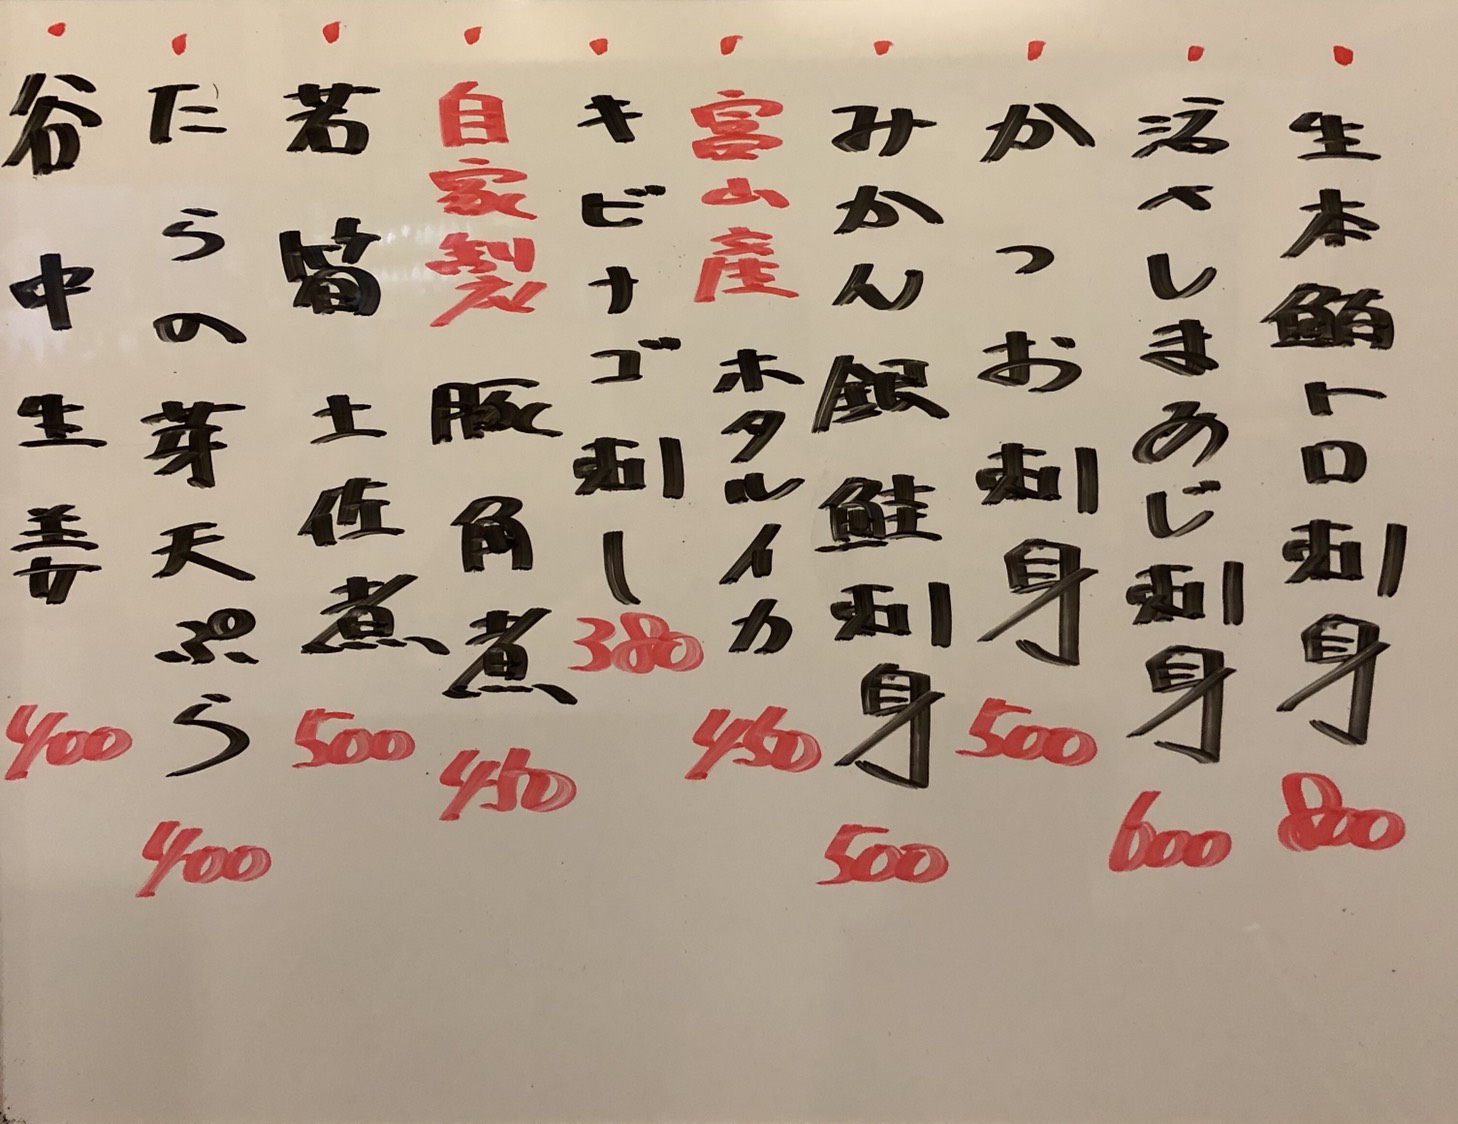 生本鮪トロ刺身 800
活〆しまあじ刺身 600
かつお刺身 500
みかん銀鮭刺身 500
富山産 ホタルイカ 450
キビナゴ刺し 380
自家製 豚角煮 450
若筍土佐煮 500
たらの芽天ぷら 400
谷中生姜 400